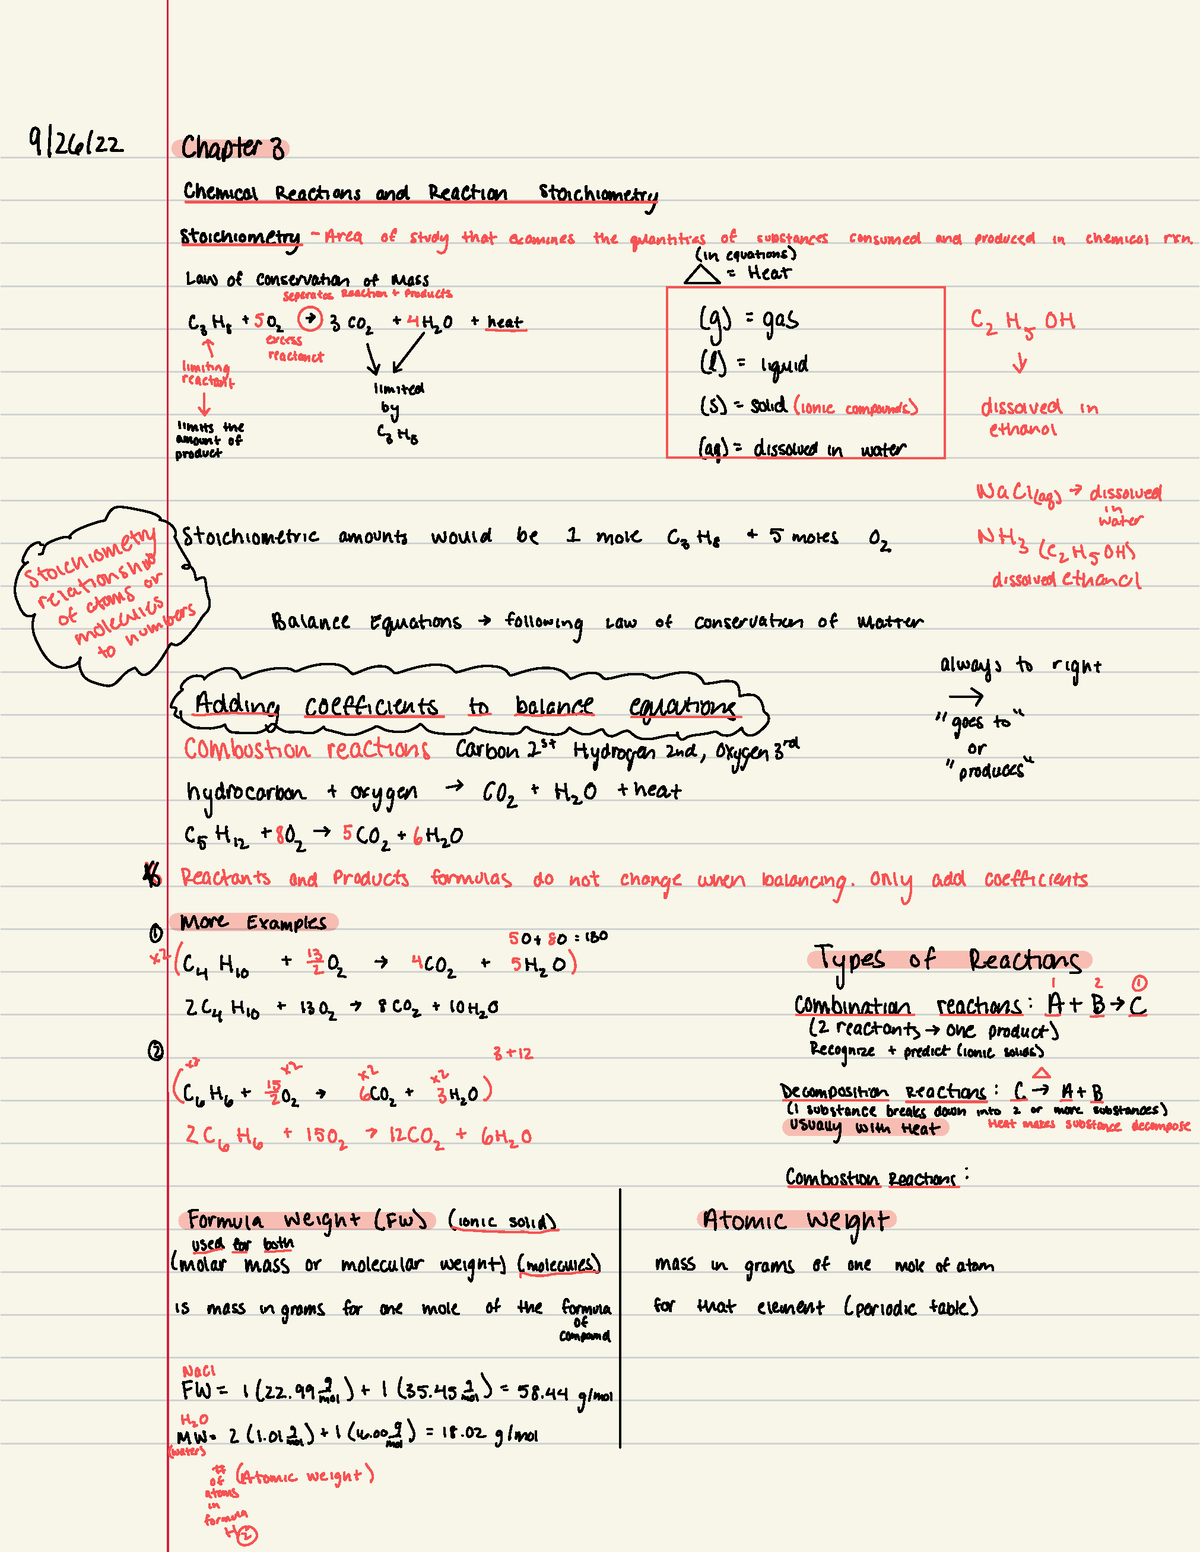 9/26/22
Chapter 3
Chemical Reactions and Reaction Stoichiometry
Stoichiometry - Area of study that examines the quantities of substances consumed and produced in chemical rxn.
(in equations)
△ = Heat
Law of conservation of Mass
separates Reaction + Products
C₃H₈ + 5O₂ → 3 CO₂ + 4H₂O + heat
excess
reactanct
limiting
reactant
↓
limits the
amount of
product
limited
by
C₃H₈
(g) = gas
(l) = liquid
(s) = solid (ionic compounds)
(aq) = dissolved in water
C₂H₅OH
↓
dissolved in
ethanol
NaCl(aq) → dissolved
in
water
NH₃ (C₂H₅OH)
dissolved ethanol
Stoichiometric amounts would be 1 mole C₃H₈ + 5 moles O₂
Stoichiometry
relationship
of atoms or
molecules
to numbers
Balance Equations → following Law of conservation of Matter
always to right
→
"goes to"
or
"produces"
Adding coefficients to balance equations
Combustion reactions Carbon 1st Hydrogen 2nd, Oxygen 3rd
hydrocarbon + oxygen → CO₂ + H₂O + heat
C₅H₁₂ + 8O₂ → 5CO₂ + 6H₂O
Reactants and Products formulas do not change when balancing. Only add coefficients
① More Examples
5O + 8O = 13O
x2 (C₄H₁₀ + 13/2 O₂ → 4CO₂ + 5H₂O)
2C₄H₁₀ + 13O₂ → 8CO₂ + 10H₂O
②
3+12
x2 x2 x2
(C₆H₆ + 15/2 O₂ → 6CO₂ + 3H₂O)
2C₆H₆ + 15O₂ → 12CO₂ + 6H₂O
Types of Reactions
1 2 ①
Combination reactions: A + B → C
(2 reactants → one product)
Recognize + predict (ionic solids)
△
Decomposition Reactions: C → A + B
(1 substance breaks down into 2 or more substances)
usually with Heat Heat makes substance decompose
Combustion Reactions:
Formula Weight (FW) (ionic solid)
used for both
(molar mass or molecular weight) (molecules)
is mass in grams for one mole of the formula
of
compound
Atomic Weight
mass in grams of one mole of atom
for that element (periodic table)
NaCl
FW = 1(22.99 g/mol) + 1(35.45 g/mol) = 58.44 g/mol
H₂O
MW = 2(1.01 g/mol) + 1(16.00 g/mol) = 18.02 g/mol
(water)
# (Atomic weight)
of
atoms
in
formula
H②